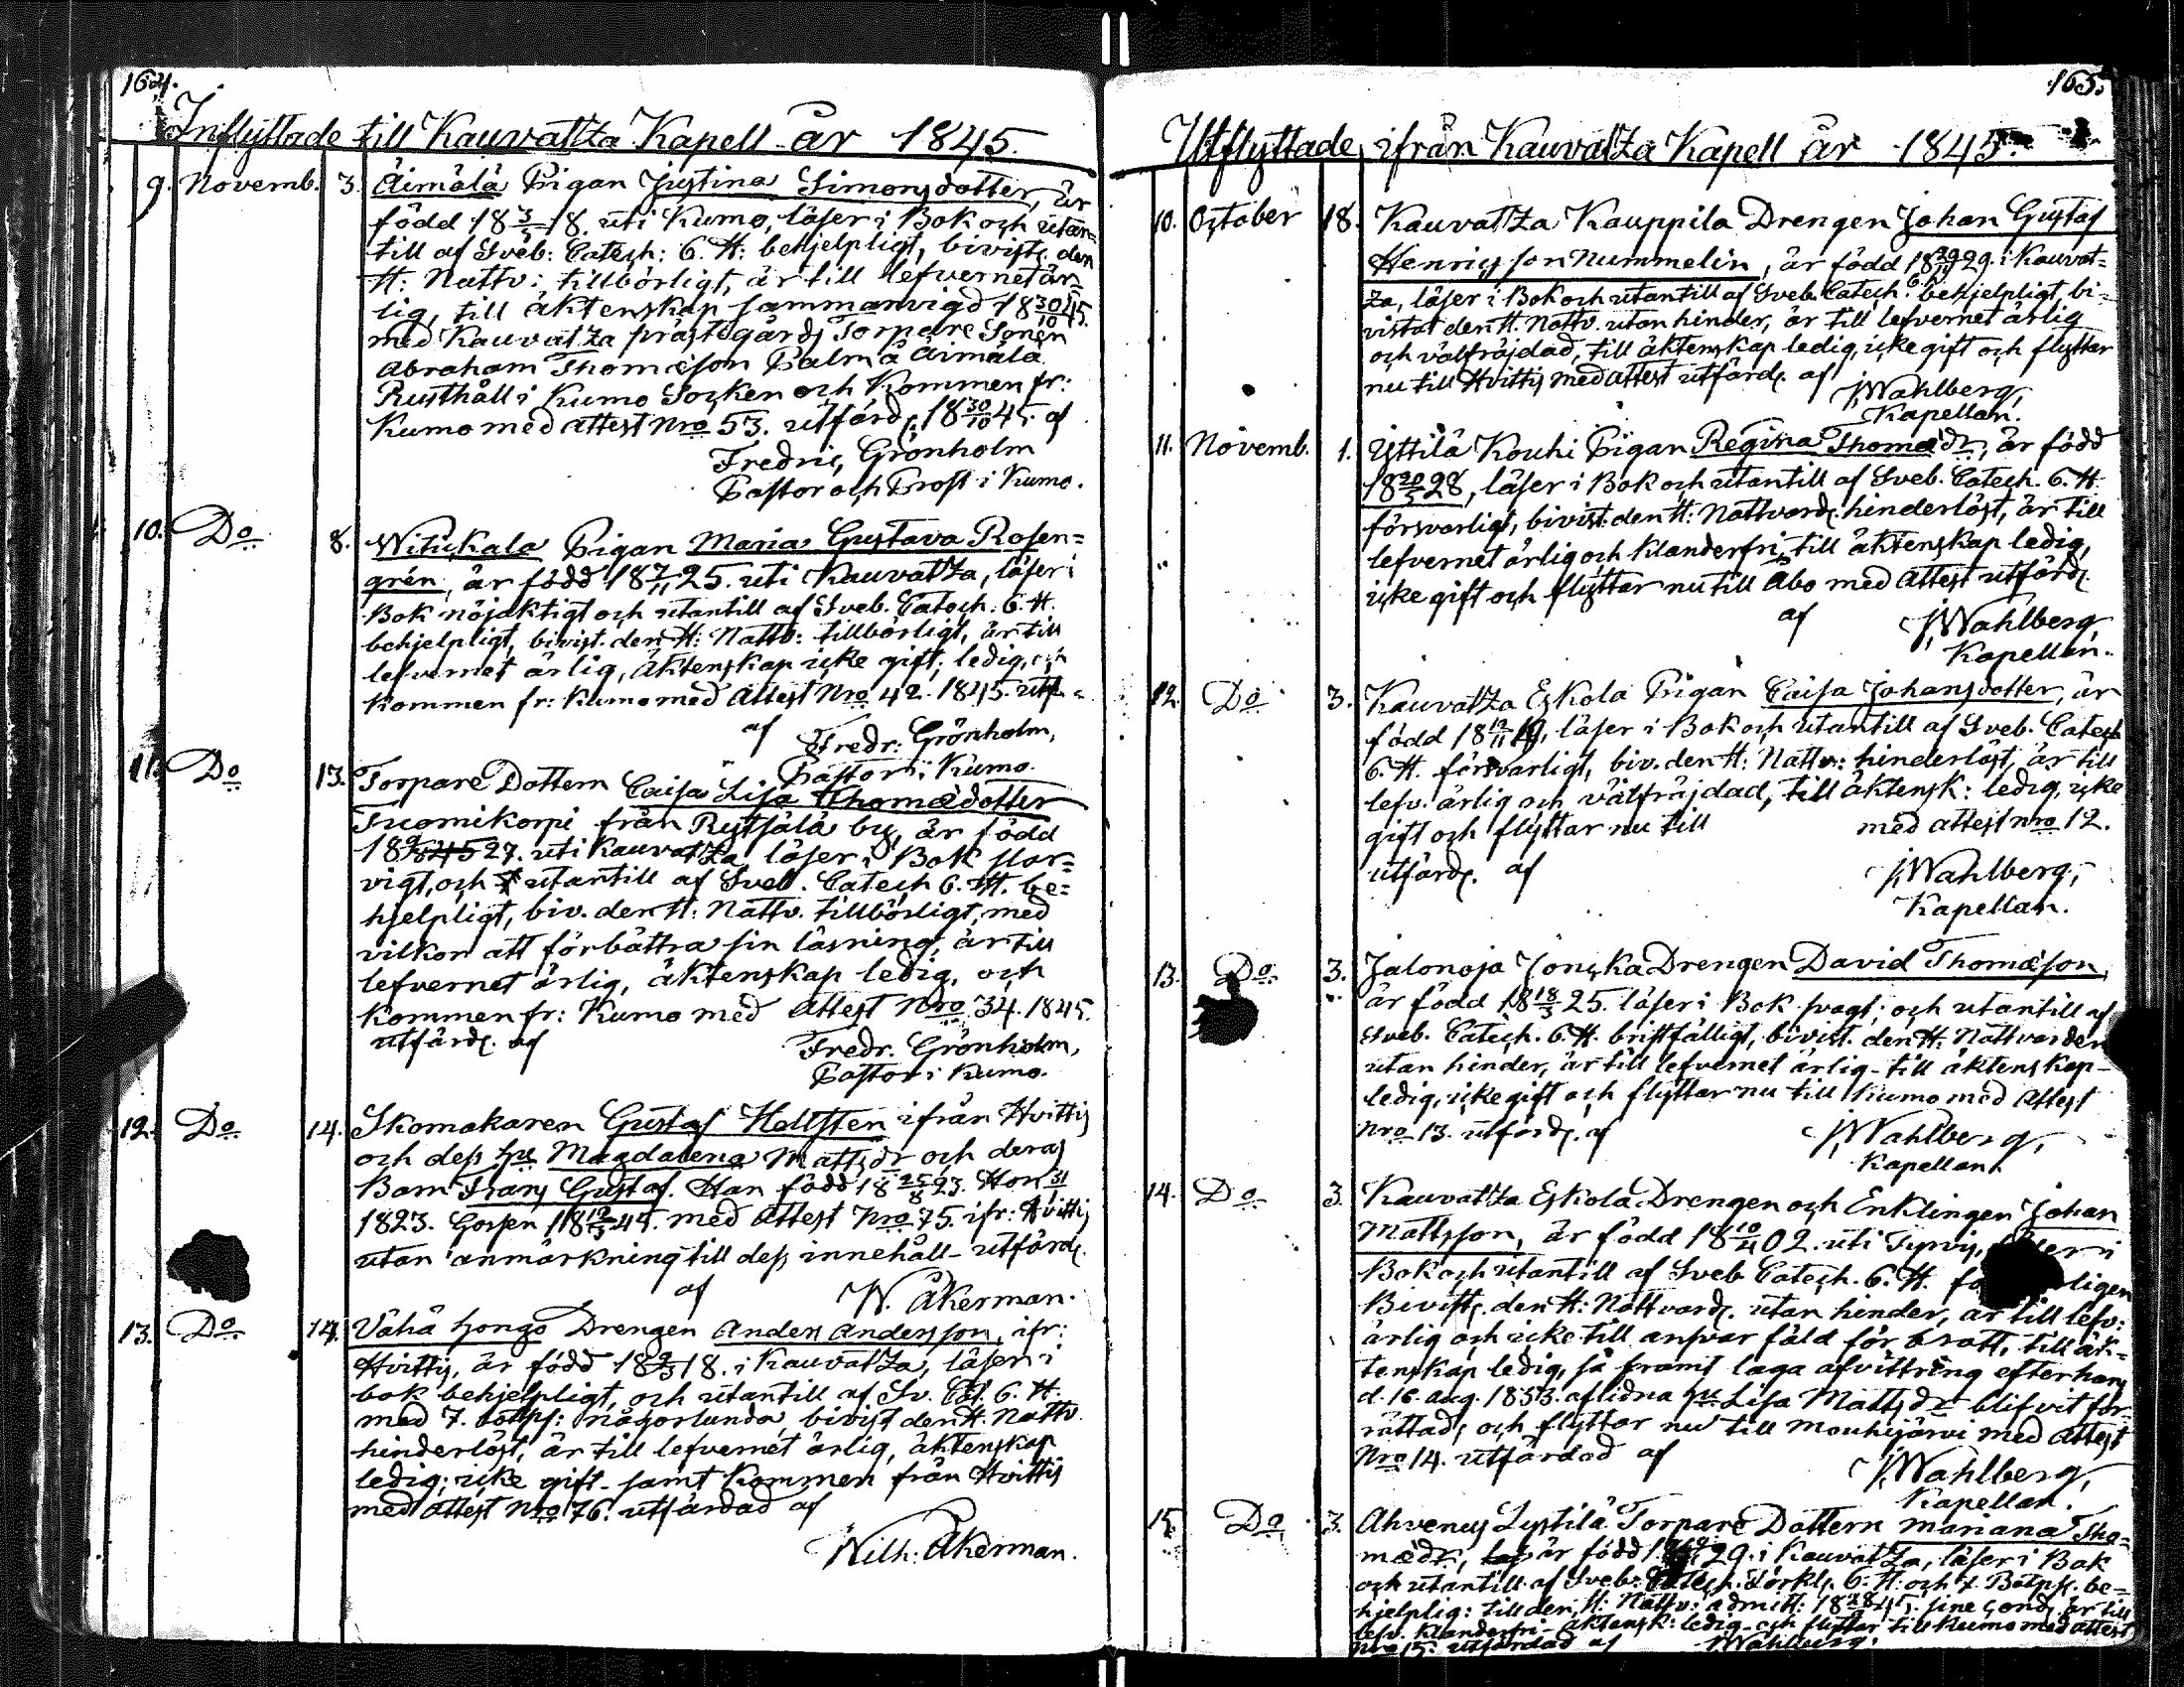 164.
Inflyttade till Kauvatza Kapell år 1845.
9. Novemb. 3. Äimälä Pigan Justina Simonsdotter, är
född 18 3/5 18. uti Kumo, läser i Bok och utan=
till af Sveb: Catech: 6. H: behjelpligt, bivist. den
H: Nattv: tillbörligt, är till lefvernet är=
lig, till äktenskap sammanvigd 18 30/10 45.
med Kauvatza prästegårds Torpare Sonen
Abraham Thomæson Palm å Äimälä
Rusthåll i Kumo Socken och Kommen fr:
Kumo med attest Nro 53. utfärd. 18 30/10 45. af
Fredric Grönholm
Pastor och Prost i Kumo.
10. Do 8. Witikala Pigan Maria Gustava Rosen=
grén, är född 18 7/11 25. uti Kauvatza, läser i
Bok nöjaktigt och utantill af Sveb. Catech: 6. H.
behjelpligt, bivist. den H: Nattv: tillbörligt, är till
lefvernet ärlig, äktenskap icke gift, ledig, och
Kommen fr: Kumo med Attest Nro 42. 1845. utf.
af Fredr: Grönholm,
Pastor i Kumo.
11. Do 13. Torpare Dottern Caisa Lisa Thomædotter
Tuomikorpi från Rytsälä by, är född
18 27. uti Kauvatza läser i Bok slar=
vigt, och utantill af Sveb. Catech 6. H. be=
hjelpligt, biv. den H: Nattv. tillbörligt, med
vilkor att förbättra sin läsning, är till
lefvernet ärlig, äktenskap ledig, och
Kommen fr: Kumo med Attest Nro 34. 1845.
utfärd. af Fredr. Grönholm,
Pastor i Kumo.
12. Do 14. Skomakaren Gustaf Hellsten ifrån Hvittis
och dess hu Magdalena Mattsdr och deras
Barn Frans Gustaf. Han född 18 25/8 23. Hon 31
1823. Gossen 18 12/3 45. med Attest Nro 75. ifr: Hvittis
utan anmärkning till dess innehåll - utfärd.
af W. Åkerman.
13. Do 14. Vähä Hongo Drengen Anders Andersson, ifr:
Hvittis, är född 18 9/3 18. i Kauvatza, läser i
bok behjelpligt, och utantill af Sv. Cat. 6. H.
med 7. botps: någorlunda, bivist den H. Nattv.
hinderlöst, är till lefvernet ärlig, äktenskap
ledig; icke gift - samt Kommen från Hvittis
med Attest Nro 76. utfärdad af
Wilh: Åkerman.
165.
Utflyttade ifrån Kauvatza Kapell år 1845.
10. October 18. Kauvatza Kauppila Drengen Johan Gustaf
Henricsson Nummelin, är född 18 29/11 29. i Kauvat=
za, läser i Bok och utantill af Sveb. Catech. behjelpligt, bi=
vistat den H. Nattv. utan hinder, är till lefvernet ärlig
och välfräjdad, till äktenskap ledig, icke gift och flyttar
nu till Hvittis med attest utfärd. af
J. Wahlberg,
Kapellan.
11. Novemb. 1. Yttilä Kouhi Pigan Regina Thomædr, är född
18 20/5 28, läser i Bok och utantill af Sveb. Catech. 6. H.
försvarligt, bivist: den H: Nattvard. hinderlöst, är till
lefvernet ärlig och Klanderfri, till äktenskap ledig,
icke gift och flyttar nu till Åbo med Attest utfärd.
af J. Wahlberg,
Kapellan.
12. Do 3. Kauvatza Eskola Pigan Caisa Johansdotter, är
född 18 12/11 19, läser i Bok och utantill af Sveb. Catech
6. H. försvarligt, biv. den H: Nattv: hinderlöst, är till
lefv. ärlig och välfräjdad, till äktensk: ledig, icke
gift och flyttar nu till med attest nro 12.
utfärd. af J. Wahlberg,
Kapellan.
13. Do 3. Jalonoja Jonska Drengen David Thomæson,
är född 18 18/3 25. läser i Bok svagt; och utantill af
Sveb. Catech. 6. H. bristfälligt, bivist. den H. Nattvarden
utan hinder, är till lefvernet ärlig - till äktenskap -
ledig, icke gift och flyttar nu till Kumo med Attest
Nro 13. utfärd. af J. Wahlberg,
Kapellan.
14. Do 3. Kauvatza Eskola Drengen och Enklingen Johan
Mattsson, är född 18 10/4 02. uti Tyrvis, i
Bok och utantill af Sveb Catech. 6. H.
Bivist. den H: Nattvard. utan hinder, är till lefv:
ärlig och icke till ansvar fäld för brott, till äk=
tenskap ledig, så framt laga afvittring efter hans
d. 16. aug. 1833. aflidna hu Lisa Mattsdr blifvit för=
rättad; och flyttar nu till Mouhijärvi med attest
Nro 14. utfärdad af J. Wahlberg,
Kapellan.
15. Do 3. Ahvenus Lystilä Torpare Dottern Mariana Tho=
mædr, är född 29. i Kauvatza, läser i Bok
och utantill af Sveb: Catech. Förkl. 6. H: och 7. Botps. be=
hjelplig: till den H: Nattv: admitt: 18 28 45. sine cond, är till
lefv. Klanderfri - äktensk: ledig - och flyttar till Kumo med attest
Nro 15. utfärdad af J. Wahlberg.